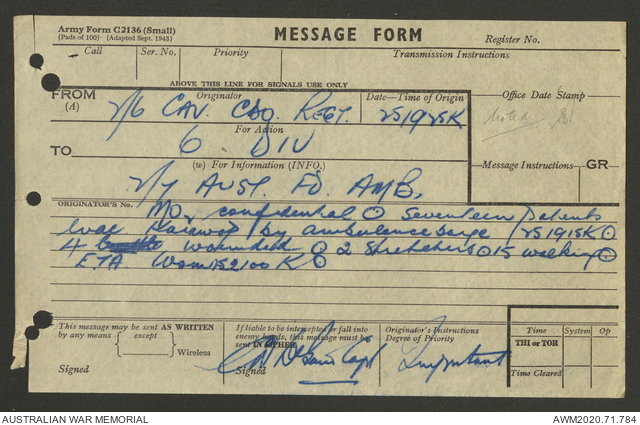 Army Form C2136 (Small)
(Pads of 100) (Adapted Sept. 1943)
MESSAGE FORM
Register No.
Call Ser. No. Priority Transmission Instructions
ABOVE THIS LINE FOR SIGNALS USE ONLY
FROM
(A)
Originator
2/6 CAV. CDO. REGT.
Date—Time of Origin
251925K
Office Date Stamp
Noted
For Action
TO
6 DIV
(w) For Information (INFO.)
Message Instructions GR
2/7 AUST. FD. AMB.
ORIGINATOR'S No.
MO2 confidential ⊙ Seventeen patients
evac by ambulance barge 251915K ⊙
4 wounded ⊙ 2 Stretchers ⊙ 15 walking ⊙
ETA. 252100 K ⊙
This message may be sent AS WRITTEN
by any means except
Wireless
Signed
If liable to be intercepted or fall into
enemy hands, this message must be
sent IN CIPHER
Signed
Capt
Originator's Instructions
Degree of Priority
Important
Time System Op
THI or TOR
Time Cleared
AUSTRALIAN WAR MEMORIAL
AWM2020.71.784